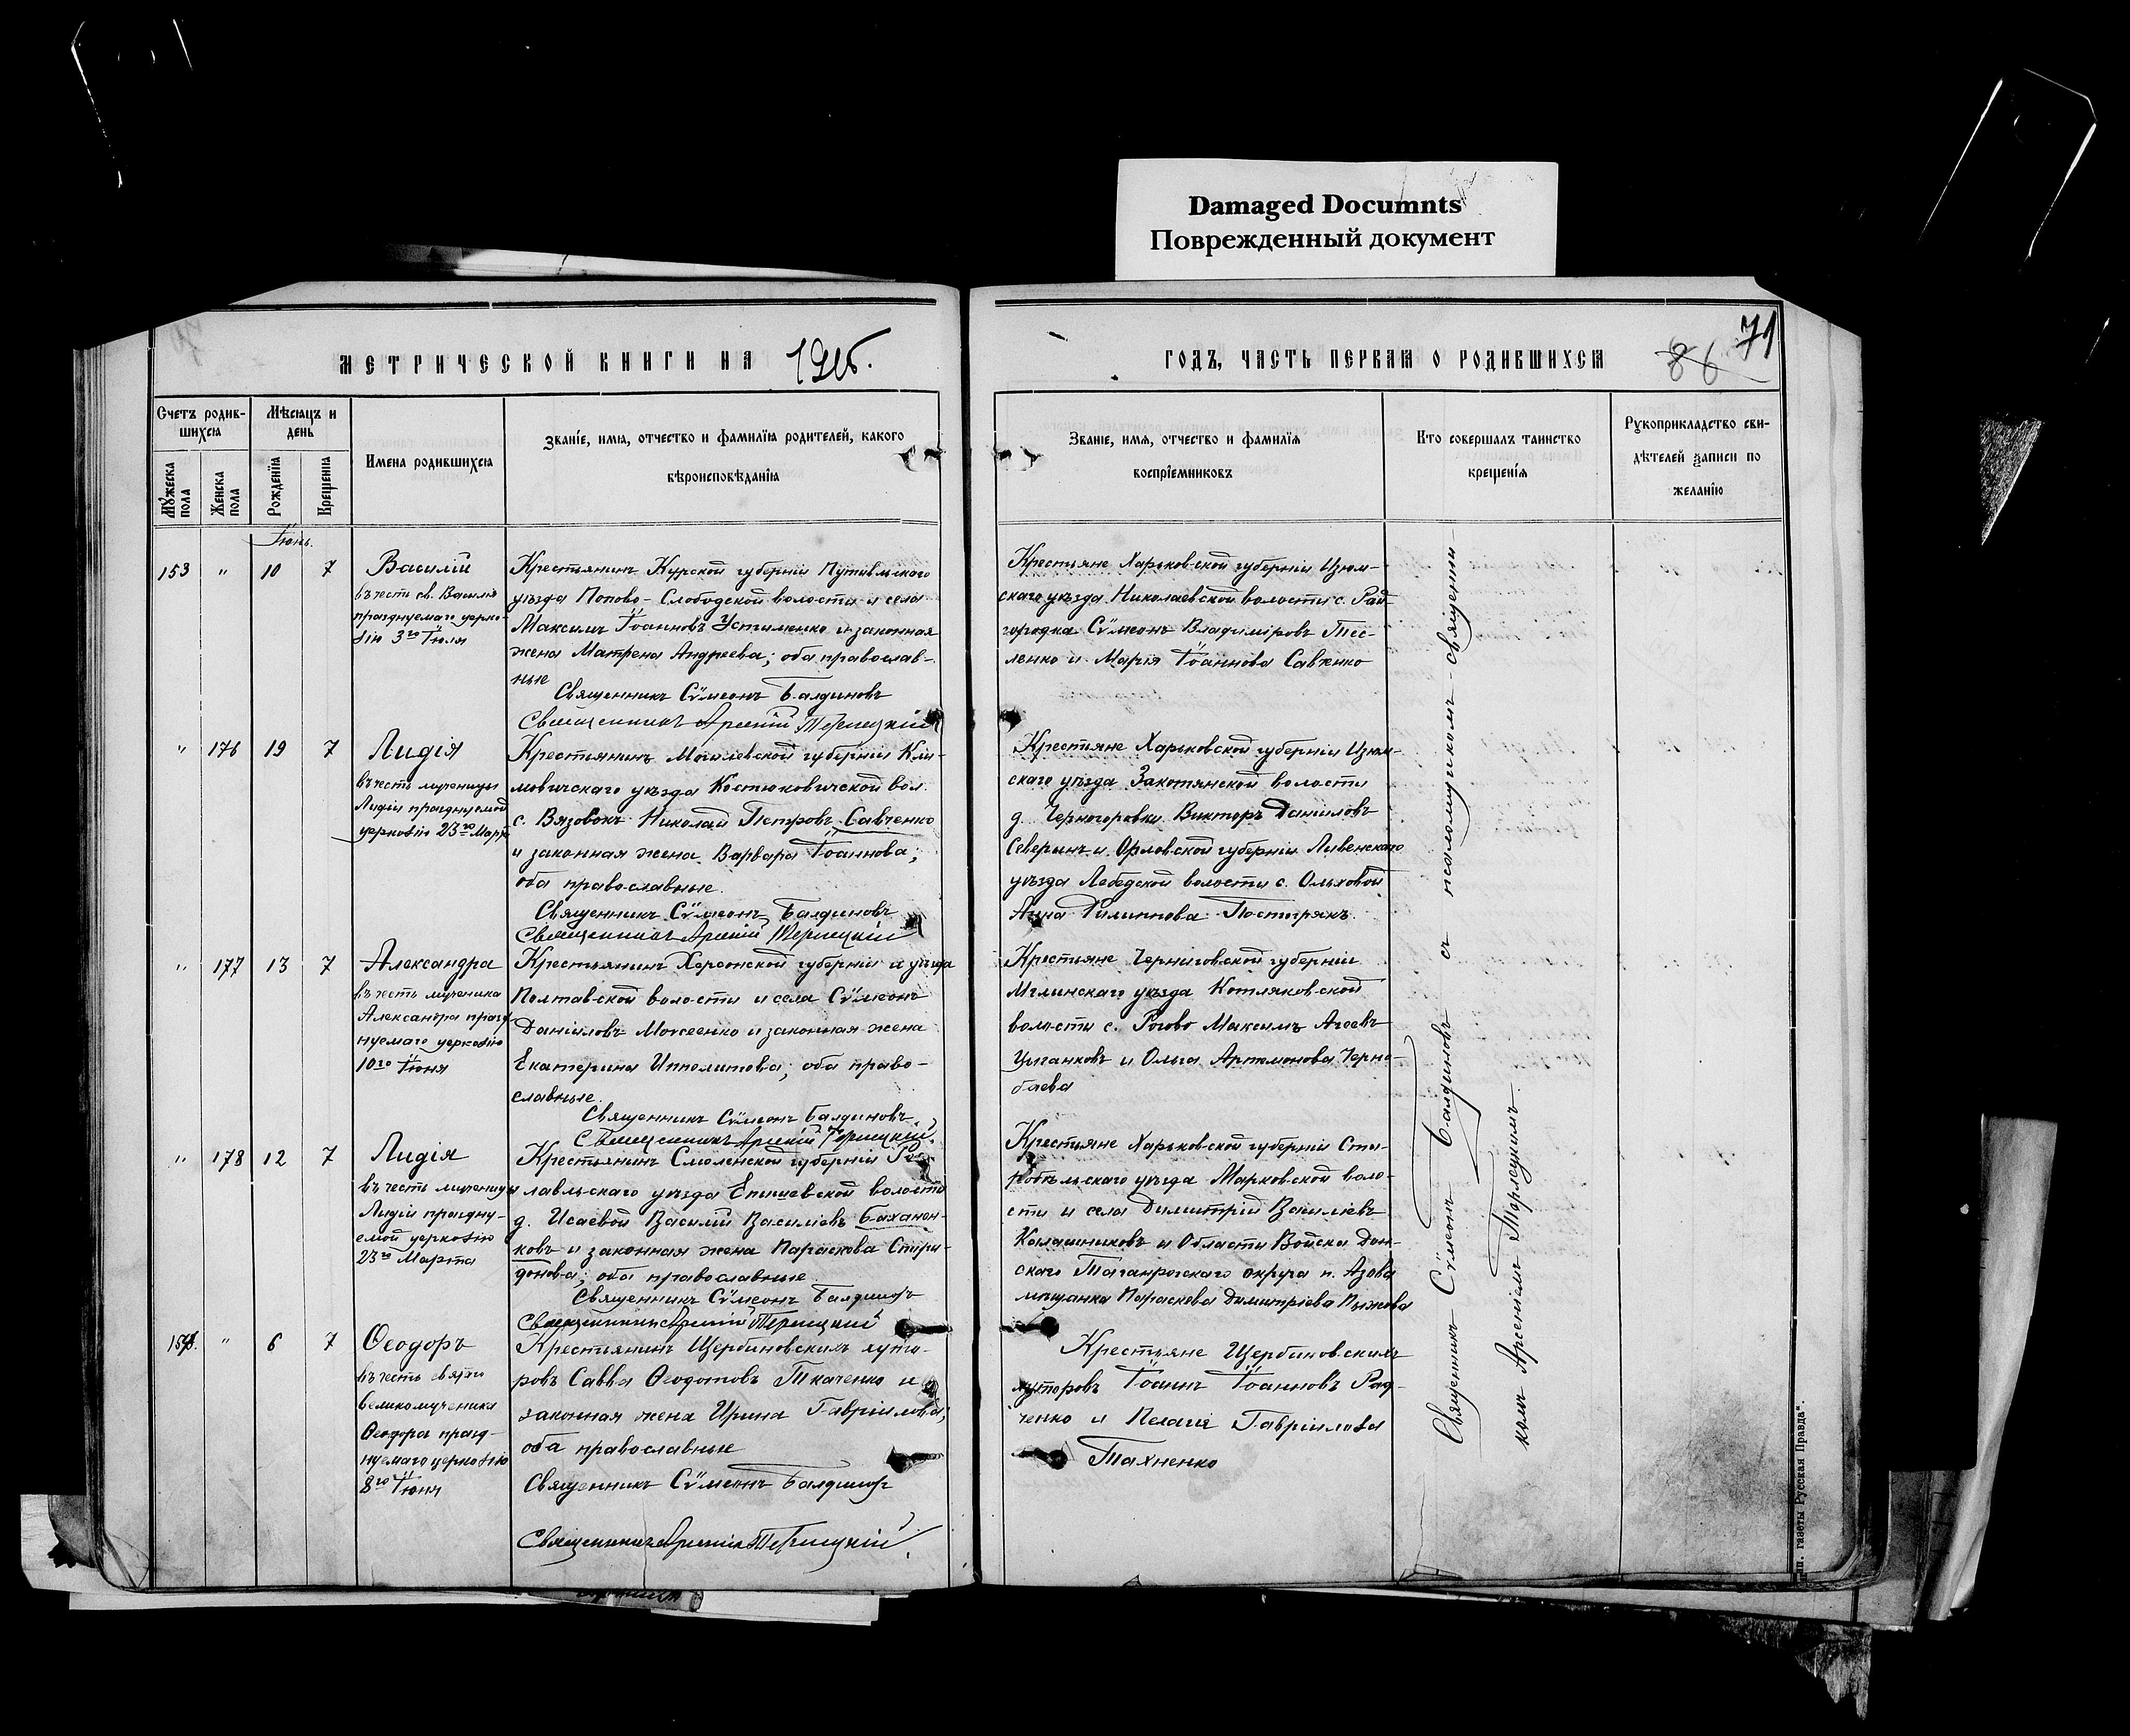 Damaged Documnts
Поврежденный документ
МЕТРИЧЕСКОЙ КНИГИ НА
ГОДЪ, ЧАСТЬ ПЕРВАЯ О РОДИВШИХСЯ
86
71
Счетъ родив-
шихся
Мужеска пола
Женска пола
Мѣсяцъ и
день
Рожденія
Крещенія
Имена родившихся
Званіе, имя, отчество и фамилія родителей, какого
вѣроисповѣданія
Званіе, имя, отчество и фамилія
воспріемниковъ
Кто совершалъ таинство
крещенія
Рукоприкладство сви-
дѣтелей записи по
желанію
Іюнь.
153 " 10 7
Василій
въ честь св. Василія
празднуемаго церко-
вію 3го Іюля
Крестьянинъ Курской губерніи Путивльскаго
уѣзда Попово-Слободской волости и села
Максимъ Іоанновъ Устименко и законная
жена Матрена Андреева; оба православ-
ные
Священникъ Сѵмеонъ Балдиновъ
Священникъ Арсеній
Крестьяне Харьковской губерніи Изюм-
скаго уѣзда Николаевской волости с. Рай-
городка Сѵмеонъ Владиміровъ Тес-
ленко и Марія Іоаннова Савченко
" 176 19 7
Лидія
въ честь мученицы
Лидіи празднуемой
церковію 23го Марта
Крестьянинъ Могилевской губерніи Кли-
мовичскаго уѣзда Костюковичской вол.
с. Вязовокъ Николай Петровъ Савченко
и законная жена Варвара Іоаннова;
оба православные.
Священникъ Сѵмеонъ Балдиновъ
Священникъ Арсеній
Крестьяне Харьковской губерніи Изюм-
скаго уѣзда Закотянской волости
д. Черногоровки Викторъ Даніиловъ
Северинъ и Орловской губерніи Ливенскаго
уѣзда Лебедской волости с. Ольховой
Анна Филиппова
" 177 13 7
Александра
въ честь мученика
Александра празд-
нуемаго церковію
10го Іюня
Крестьянинъ Херсонской губерніи и уѣзда
Полтавской волости и села Сѵмеонъ
Даніиловъ Моисеенко и законная жена
Екатерина Ипполитова; оба право-
славные.
Священникъ Сѵмеонъ Балдиновъ.
Священникъ Арсеній
Крестьяне Черниговской губерніи
Мглинскаго уѣзда Котляковской
волости с. Рогово Максимъ Агеевъ
Цыганковъ и Ольга Артамонова Черно-
баева
" 178 12 7
Лидія
въ честь мученицы
Лидіи праздну-
емой церковію
23го Марта
Крестьянинъ Смоленской губерніи Рос-
лавльскаго уѣзда Епишевской волости
д. Исаевой Василій Василіевъ Баханен-
ковъ и законная жена Параскова Спири-
донова; оба православные.
Священникъ Сѵмеонъ Балдиновъ
Священникъ Арсеній
Крестьяне Харьковской губерніи Ста-
робѣльскаго уѣзда Марковской воло-
сти и села Димитрій Василіевъ
Калашниковъ и Области Войска Дон-
скаго Таганрогскаго округа п. Азова
мѣщанка Параскева Димитріева
154. " 6 7
Ѳеодоръ
въ честь святаго
великомученика
Ѳеодора празд-
нуемаго церковію
8го Іюня
Крестьянинъ Щербиновскихъ хуто-
ровъ Савва Ѳеодотовъ Ткаченко и
законная жена Ирина Гавріилова;
оба православные
Священникъ Сѵмеонъ Балдиновъ
Священникъ Арсеній
Крестьяне Щербиновскихъ
хуторовъ Іоаннъ Іоанновъ Рад-
ченко и Пелагія Гавріилова
Тахненко
Священникъ Сѵмеонъ Балдиновъ съ псаломщикомъ-священни-
комъ Арсеніемъ
Тип. газеты Русская Правда".